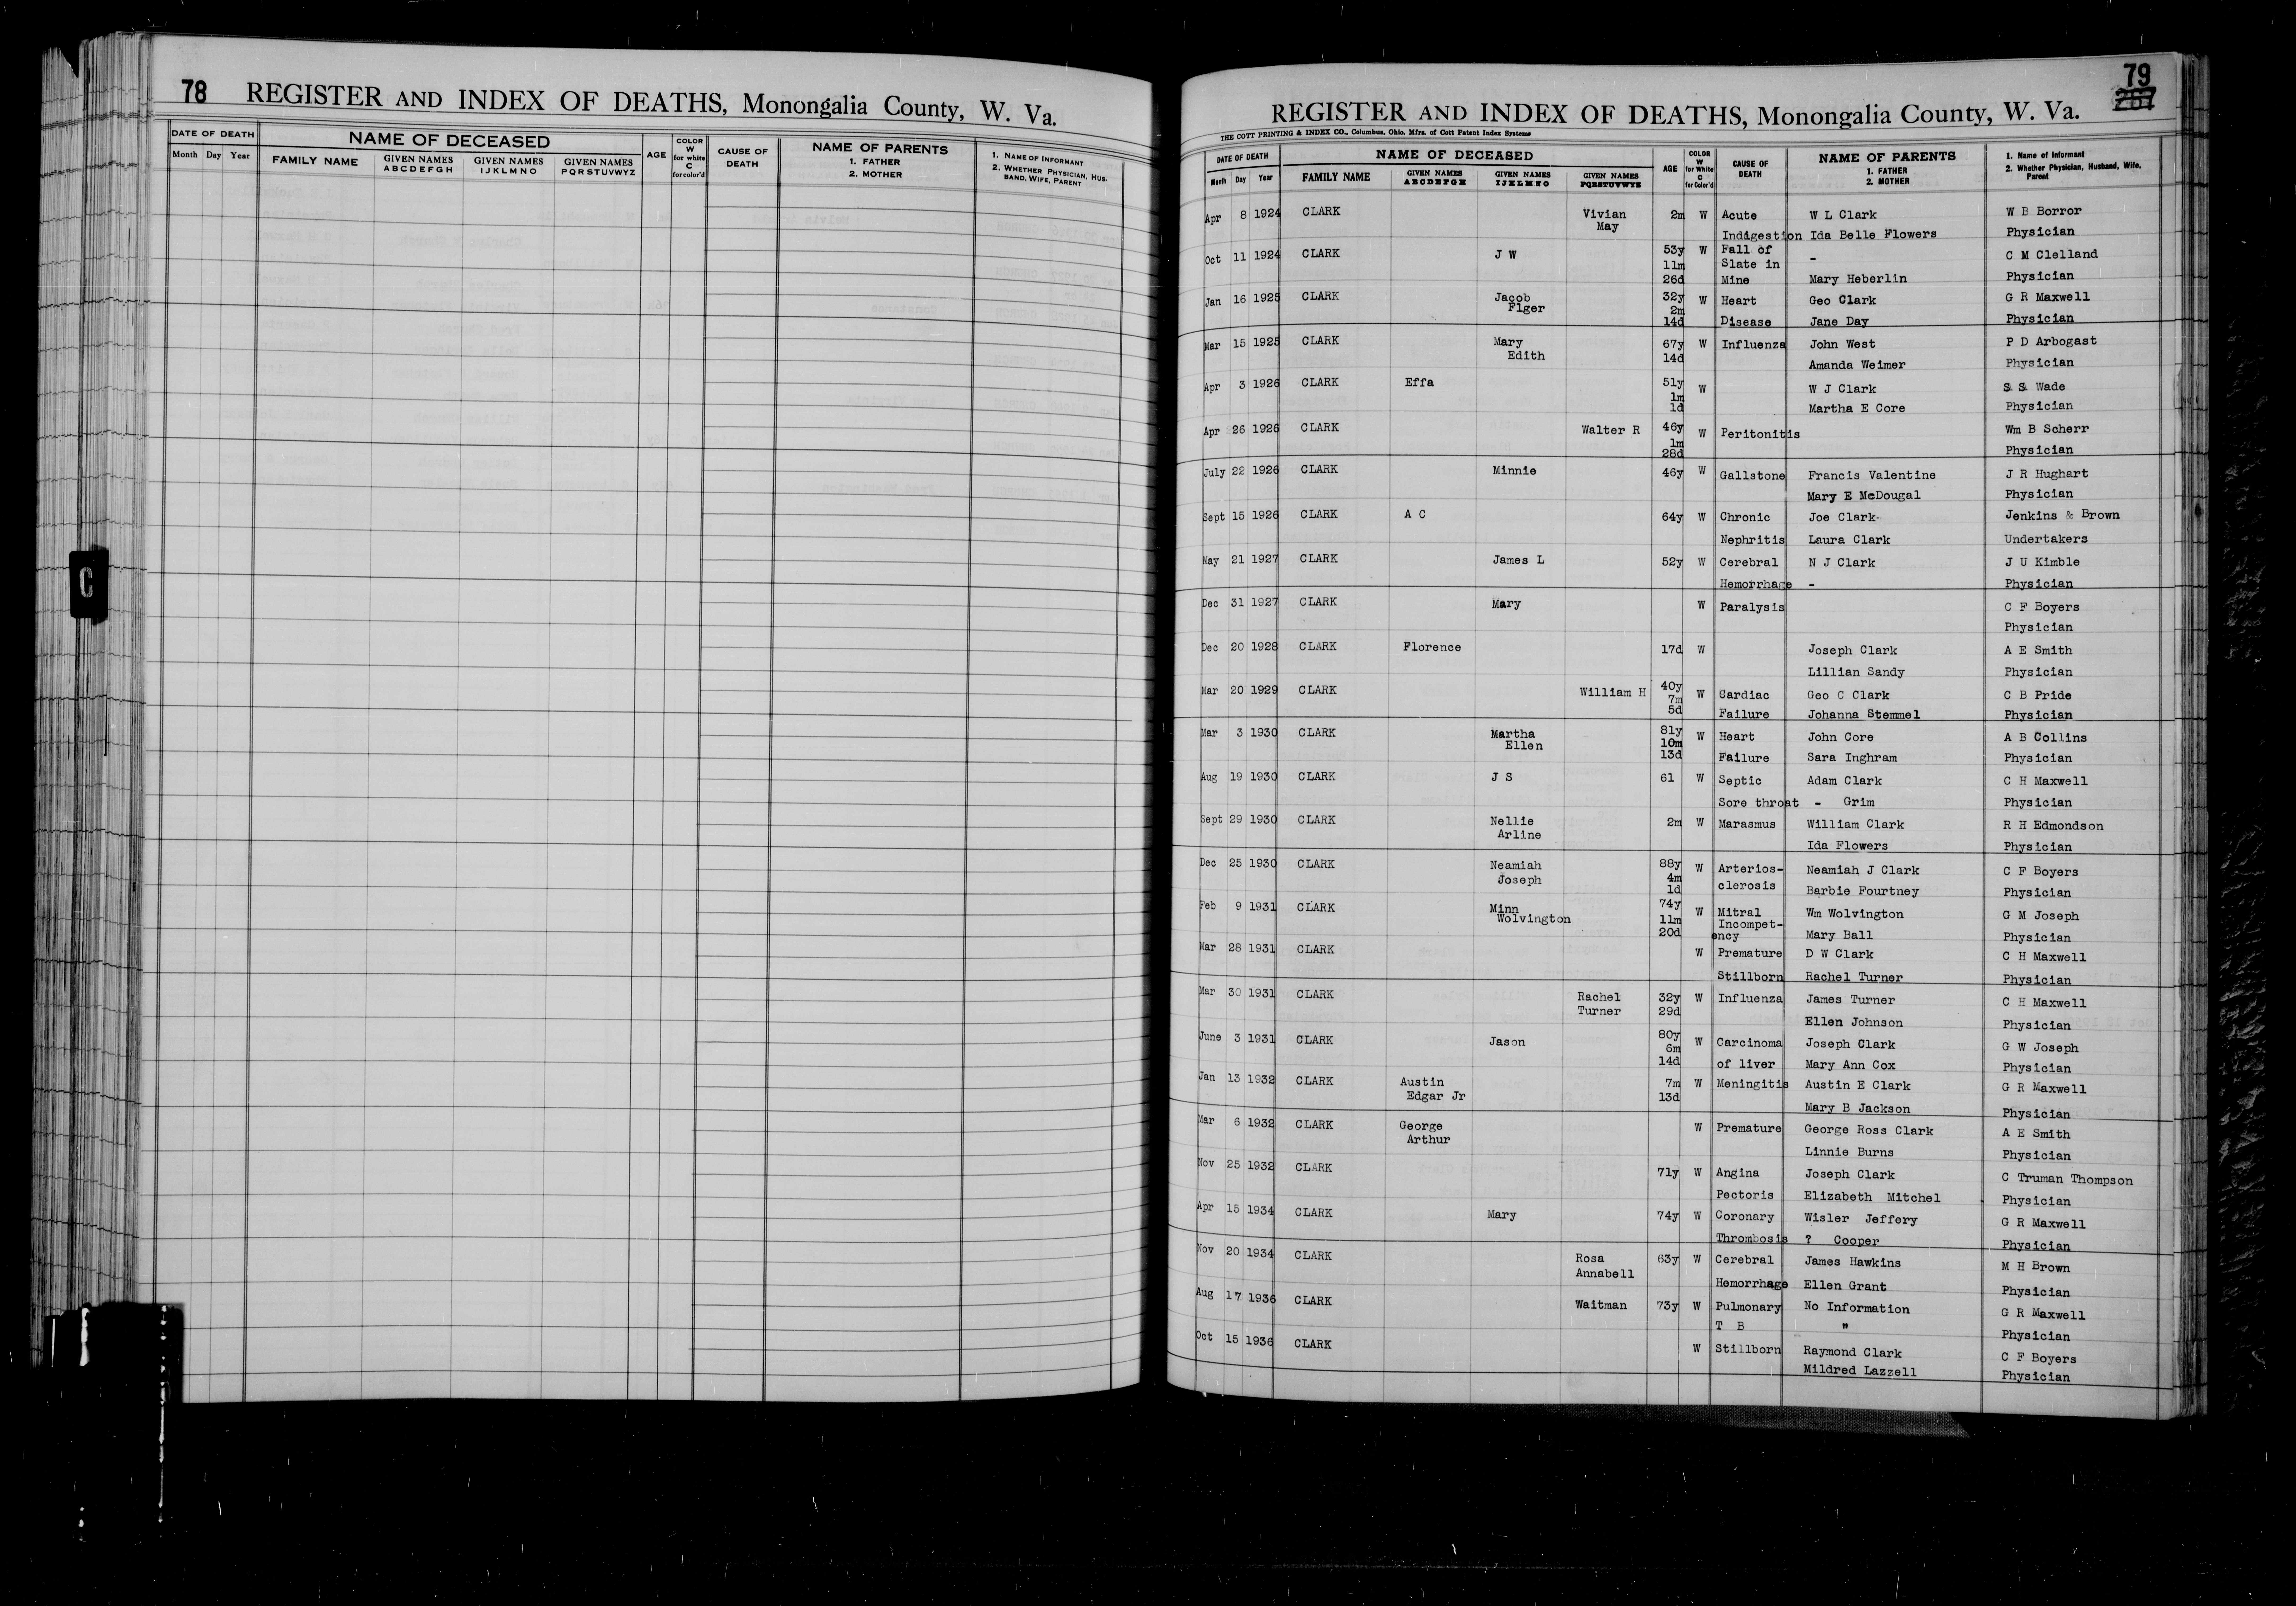 78 REGISTER AND INDEX OF DEATHS, Monongalia County, W. Va.
DATE OF DEATH NAME OF DECEASED AGE COLOR W for white C for color'd CAUSE OF DEATH NAME OF PARENTS 1. FATHER 2. MOTHER 1. NAME OF INFORMANT 2. WHETHER PHYSICIAN, HUSBAND, WIFE, PARENT
Month Day Year FAMILY NAME GIVEN NAMES ABCDEFGH GIVEN NAMES IJKLMNO GIVEN NAMES PQRSTUVWYZ
C
79
REGISTER AND INDEX OF DEATHS, Monongalia County, W. Va.
THE COTT PRINTING & INDEX CO., Columbus, Ohio, Mfrs. of Cott Patent Index Systems
DATE OF DEATH NAME OF DECEASED AGE COLOR W for White C for Color'd CAUSE OF DEATH NAME OF PARENTS 1. FATHER 2. MOTHER 1. Name of Informant 2. Whether Physician, Husband, Wife, Parent
Month Day Year FAMILY NAME GIVEN NAMES ABCDEFGH GIVEN NAMES IJKLMNO GIVEN NAMES PQRSTUVWYZ
Apr 8 1924 CLARK Vivian 2m W Acute W L Clark W B Borror
May Indigestion Ida Belle Flowers Physician
Oct 11 1924 CLARK J W 53y W Fall of - C M Clelland
11m Slate in
26d Mine Mary Heberlin Physician
Jan 16 1925 CLARK Jacob 32y W Heart Geo Clark G R Maxwell
Flger 2m
14d Disease Jane Day Physician
Mar 15 1925 CLARK Mary 67y W Influenza John West P D Arbogast
Edith 14d Amanda Weimer Physician
Apr 3 1926 CLARK Effa 51y W W J Clark S S Wade
1m
1d Martha E Core Physician
Apr 26 1926 CLARK Walter R 46y W Peritonitis Wm B Scherr
1m
28d Physician
July 22 1926 CLARK Minnie 46y W Gallstone Francis Valentine J R Hughart
Mary E McDougal Physician
Sept 15 1926 CLARK A C 64y W Chronic Joe Clark Jenkins & Brown
Nephritis Laura Clark Undertakers
May 21 1927 CLARK James L 52y W Cerebral N J Clark J U Kimble
Hemorrhage - Physician
Dec 31 1927 CLARK Mary W Paralysis C F Boyers
Physician
Dec 20 1928 CLARK Florence 17d W Joseph Clark A E Smith
Lillian Sandy Physician
Mar 20 1929 CLARK William H 40y W Cardiac Geo C Clark C B Pride
7m
5d Failure Johanna Stemmel Physician
Mar 3 1930 CLARK Martha 81y W Heart John Core A B Collins
Ellen 10m
13d Failure Sara Inghram Physician
Aug 19 1930 CLARK J S 61 W Septic Adam Clark C H Maxwell
Sore throat - Grim Physician
Sept 29 1930 CLARK Nellie 2m W Marasmus William Clark R H Edmondson
Arline Ida Flowers Physician
Dec 25 1930 CLARK Neamiah 88y W Arterios- Neamiah J Clark C F Boyers
Joseph 4m
1d clerosis Barbie Fourtney Physician
Feb 9 1931 CLARK Minn 74y W Mitral Wm Wolvington G M Joseph
Wolvington 11m Incompet-
20d ency Mary Ball Physician
Mar 28 1931 CLARK W Premature D W Clark C H Maxwell
Stillborn Rachel Turner Physician
Mar 30 1931 CLARK Rachel 32y W Influenza James Turner C H Maxwell
Turner 29d Ellen Johnson Physician
June 3 1931 CLARK Jason 80y W Carcinoma Joseph Clark G W Joseph
6m
14d of liver Mary Ann Cox Physician
Jan 13 1932 CLARK Austin 7m W Meningitis Austin E Clark G R Maxwell
Edgar Jr 13d Mary B Jackson Physician
Mar 6 1932 CLARK George W Premature George Ross Clark A E Smith
Arthur Linnie Burns Physician
Nov 25 1932 CLARK 71y W Angina Joseph Clark C Truman Thompson
Pectoris Elizabeth Mitchel Physician
Apr 15 1934 CLARK Mary 74y W Coronary Wisler Jeffery G R Maxwell
Thrombosis ? Cooper Physician
Nov 20 1934 CLARK Rosa 63y W Cerebral James Hawkins M H Brown
Annabell Hemorrhage Ellen Grant Physician
Aug 17 1936 CLARK Waitman 73y W Pulmonary No Information G R Maxwell
T B " Physician
Oct 15 1936 CLARK W Stillborn Raymond Clark C F Boyers
Mildred Lazzell Physician